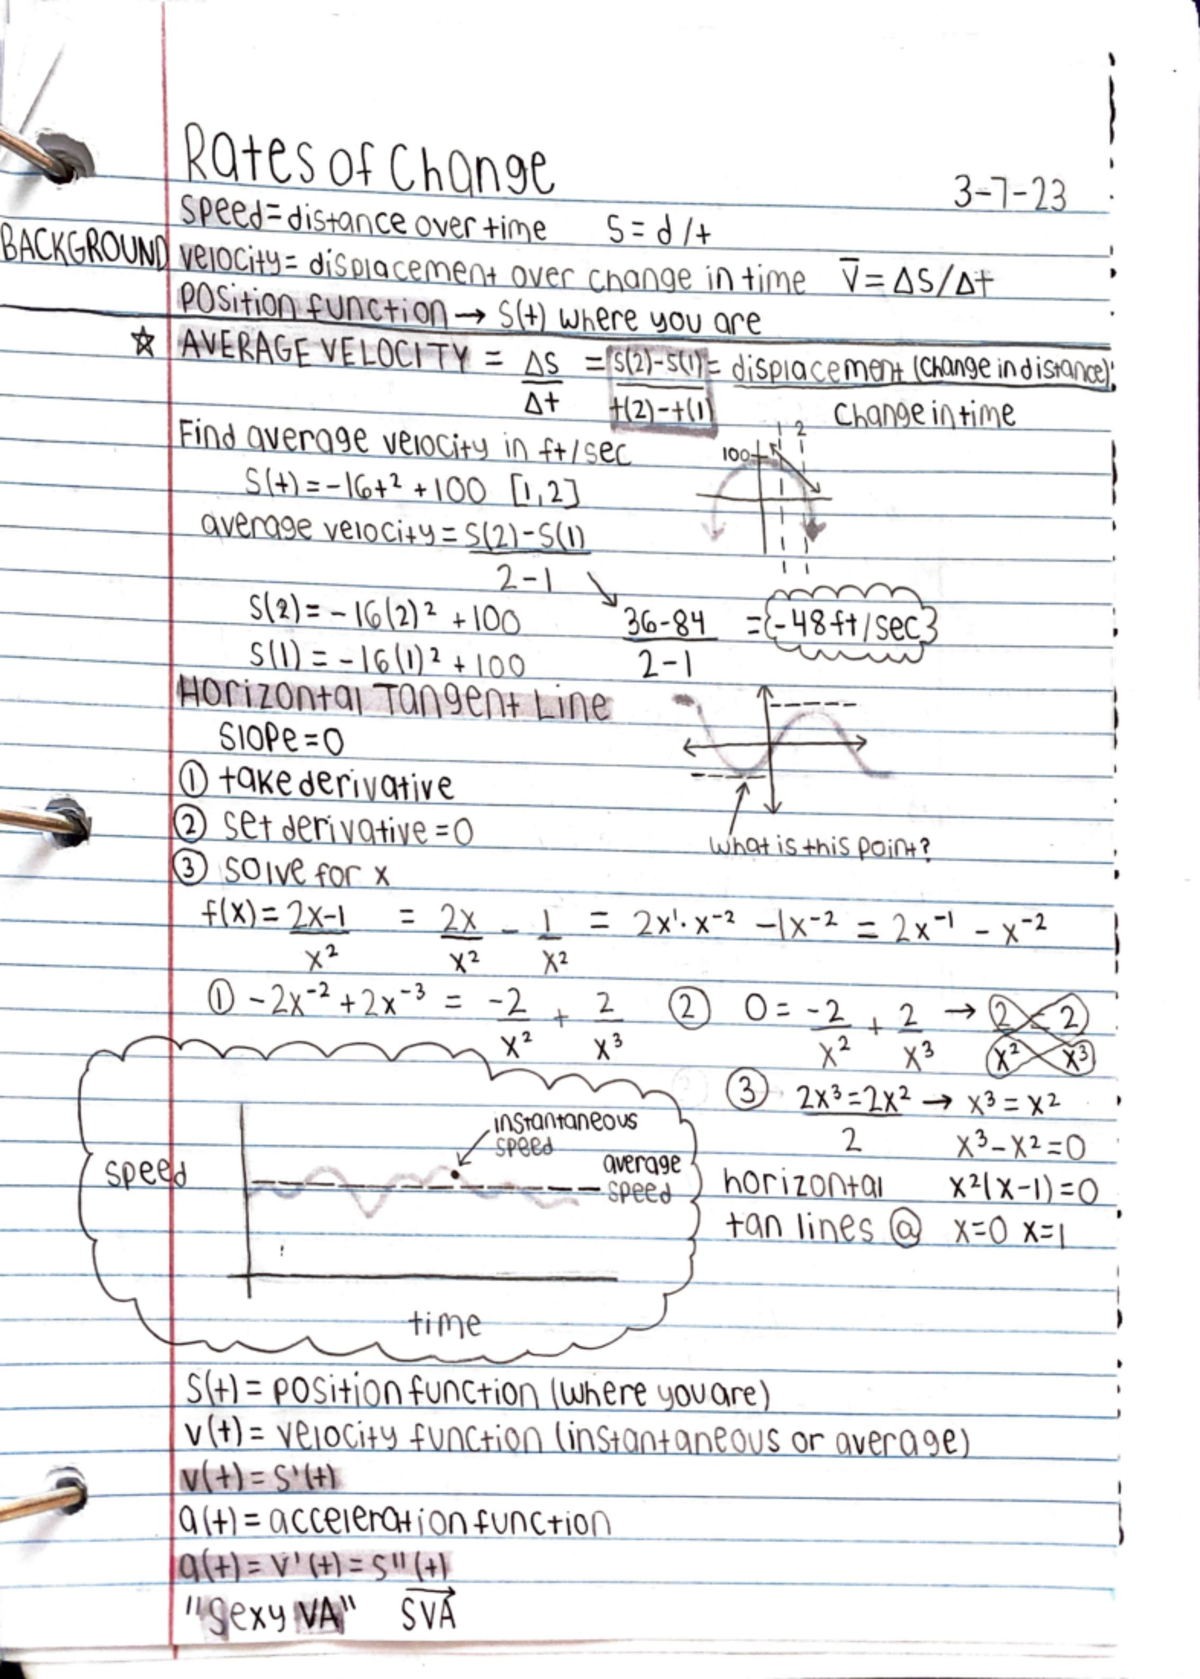 Rates of Change
3-7-23
speed = distance over time    S = d/t
BACKGROUND velocity = displacement over change in time    V̅ = ΔS/Δt
position function → s(t) where you are
☆ AVERAGE VELOCITY = ΔS/Δt = s(2)-s(1)/t(2)-t(1) = displacement (change in distance)/change in time
Find average velocity in ft/sec
100
1 2
s(t) = -16t² + 100 [1,2]
average velocity = s(2)-s(1)/2-1
s(2) = -16(2)² + 100
36-84/2-1 = -48 ft/sec
s(1) = -16(1)² + 100
Horizontal Tangent Line
slope = 0
① take derivative
② set derivative = 0
what is this point?
③ solve for x
f(x) = 2x-1/x² = 2x/x² - 1/x² = 2x¹·x⁻² - 1x⁻² = 2x⁻¹ - x⁻²
① -2x⁻² + 2x⁻³ = -2/x² + 2/x³
② 0 = -2/x² + 2/x³ → 2/x² = 2/x³
③ 2x³ = 2x²/2 → x³ = x²
x³ - x² = 0
x²(x-1) = 0
horizontal
tan lines @ x=0 x=1
instantaneous
speed
average
speed
speed
time
s(t) = position function (where you are)
v(t) = velocity function (instantaneous or average)
v(t) = s'(t)
a(t) = acceleration function
a(t) = v'(t) = s''(t)
"sexy VA"    SVA